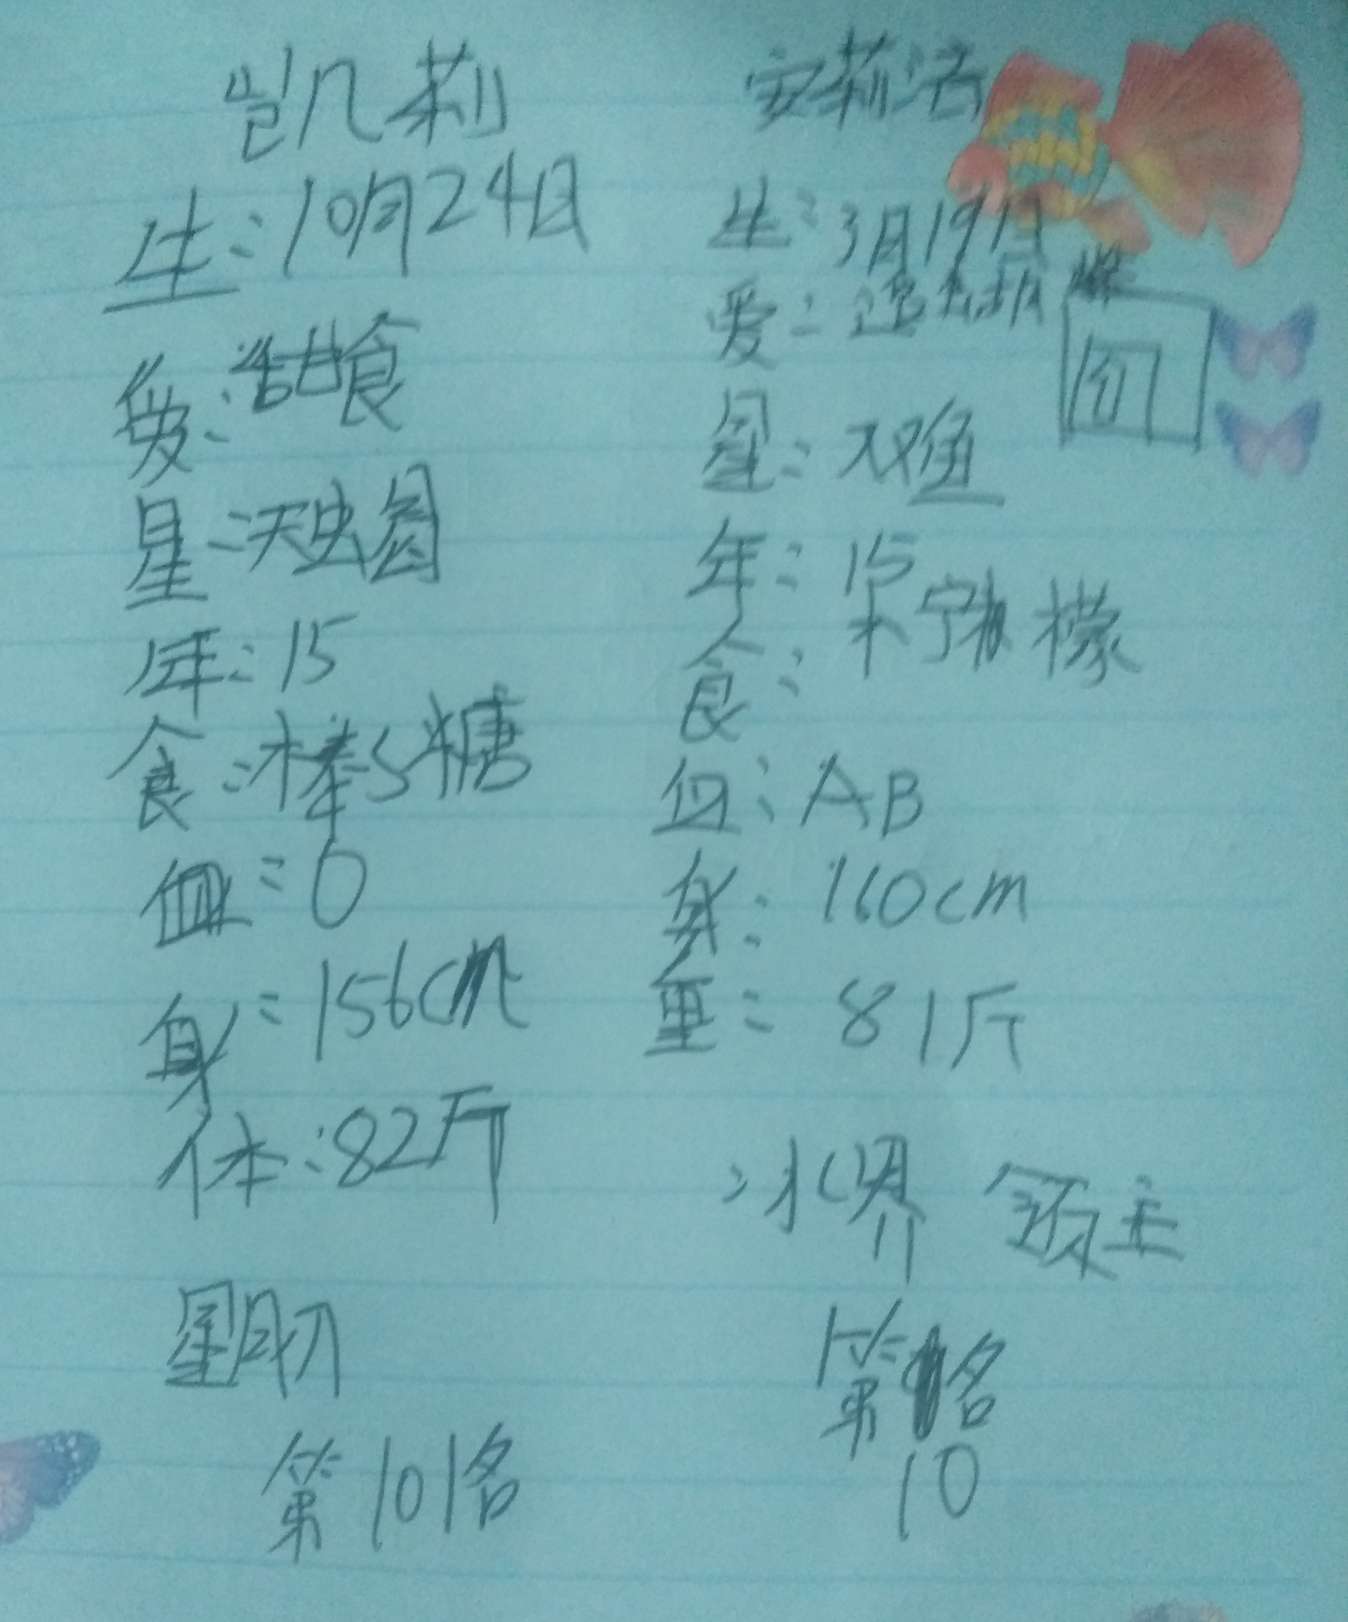 凯莉
生：10月24日
爱：甜食
星：天蝎
年：15
食：棒糖
血：O
身：156cm
体：82斤
星
第101名
安莉洁
生：3月19日
爱：
星：双鱼
年：15
食：柠檬
血：AB
身：160cm
重：81斤
冰界 领主
第名
10